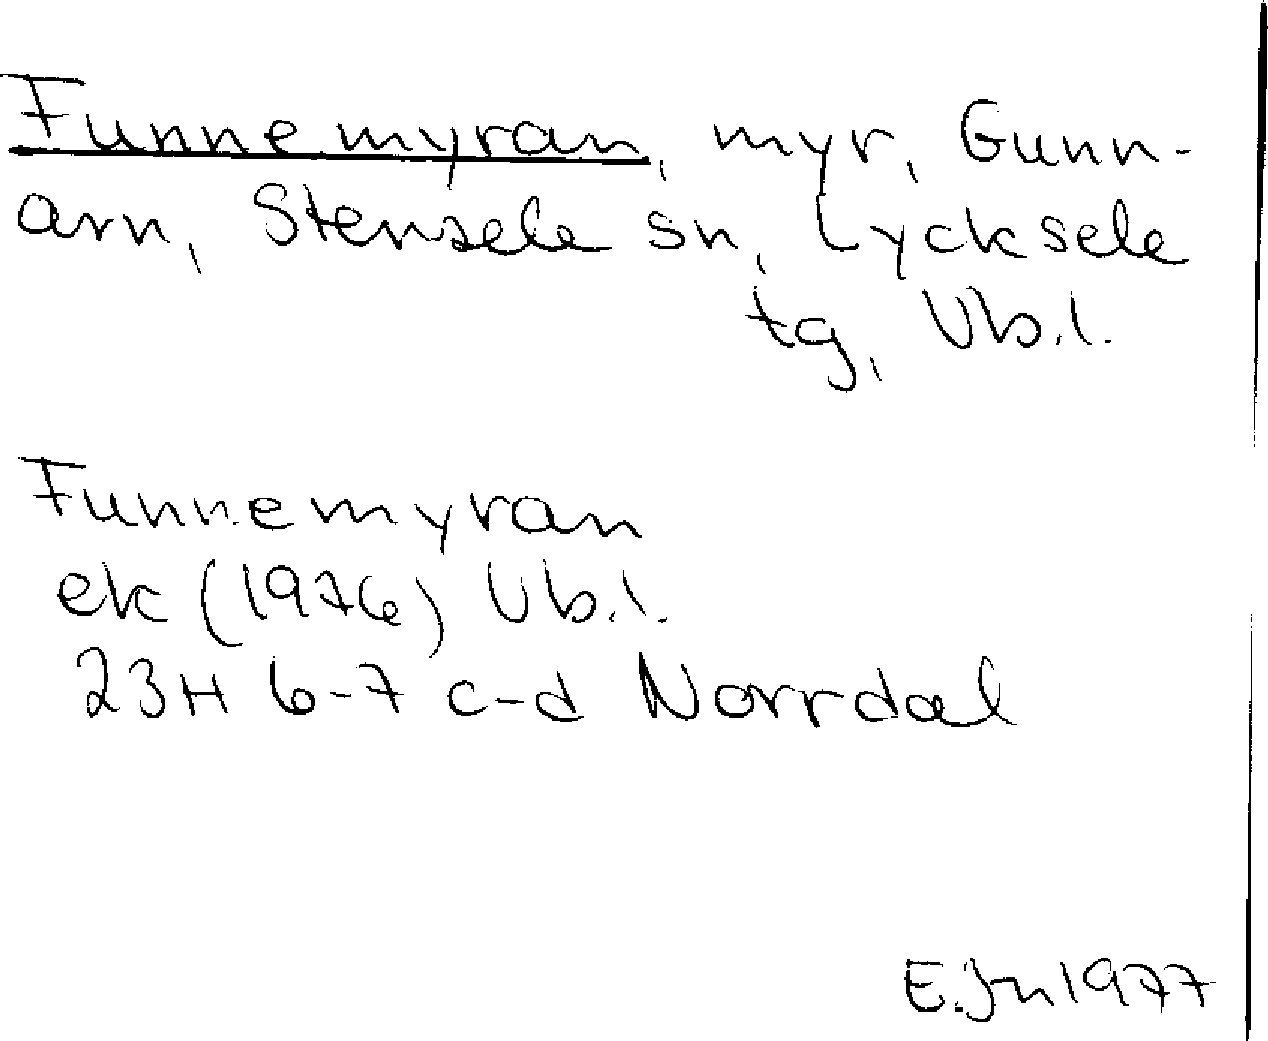 Funnemyran, myr, Gunn-
arn, Stensele sn, Lycksele
tg, Vb.l.
Funnemyran
ek (1976) Vb.l.
23H 6-7 c-d Norrdal
E.Jn 1977